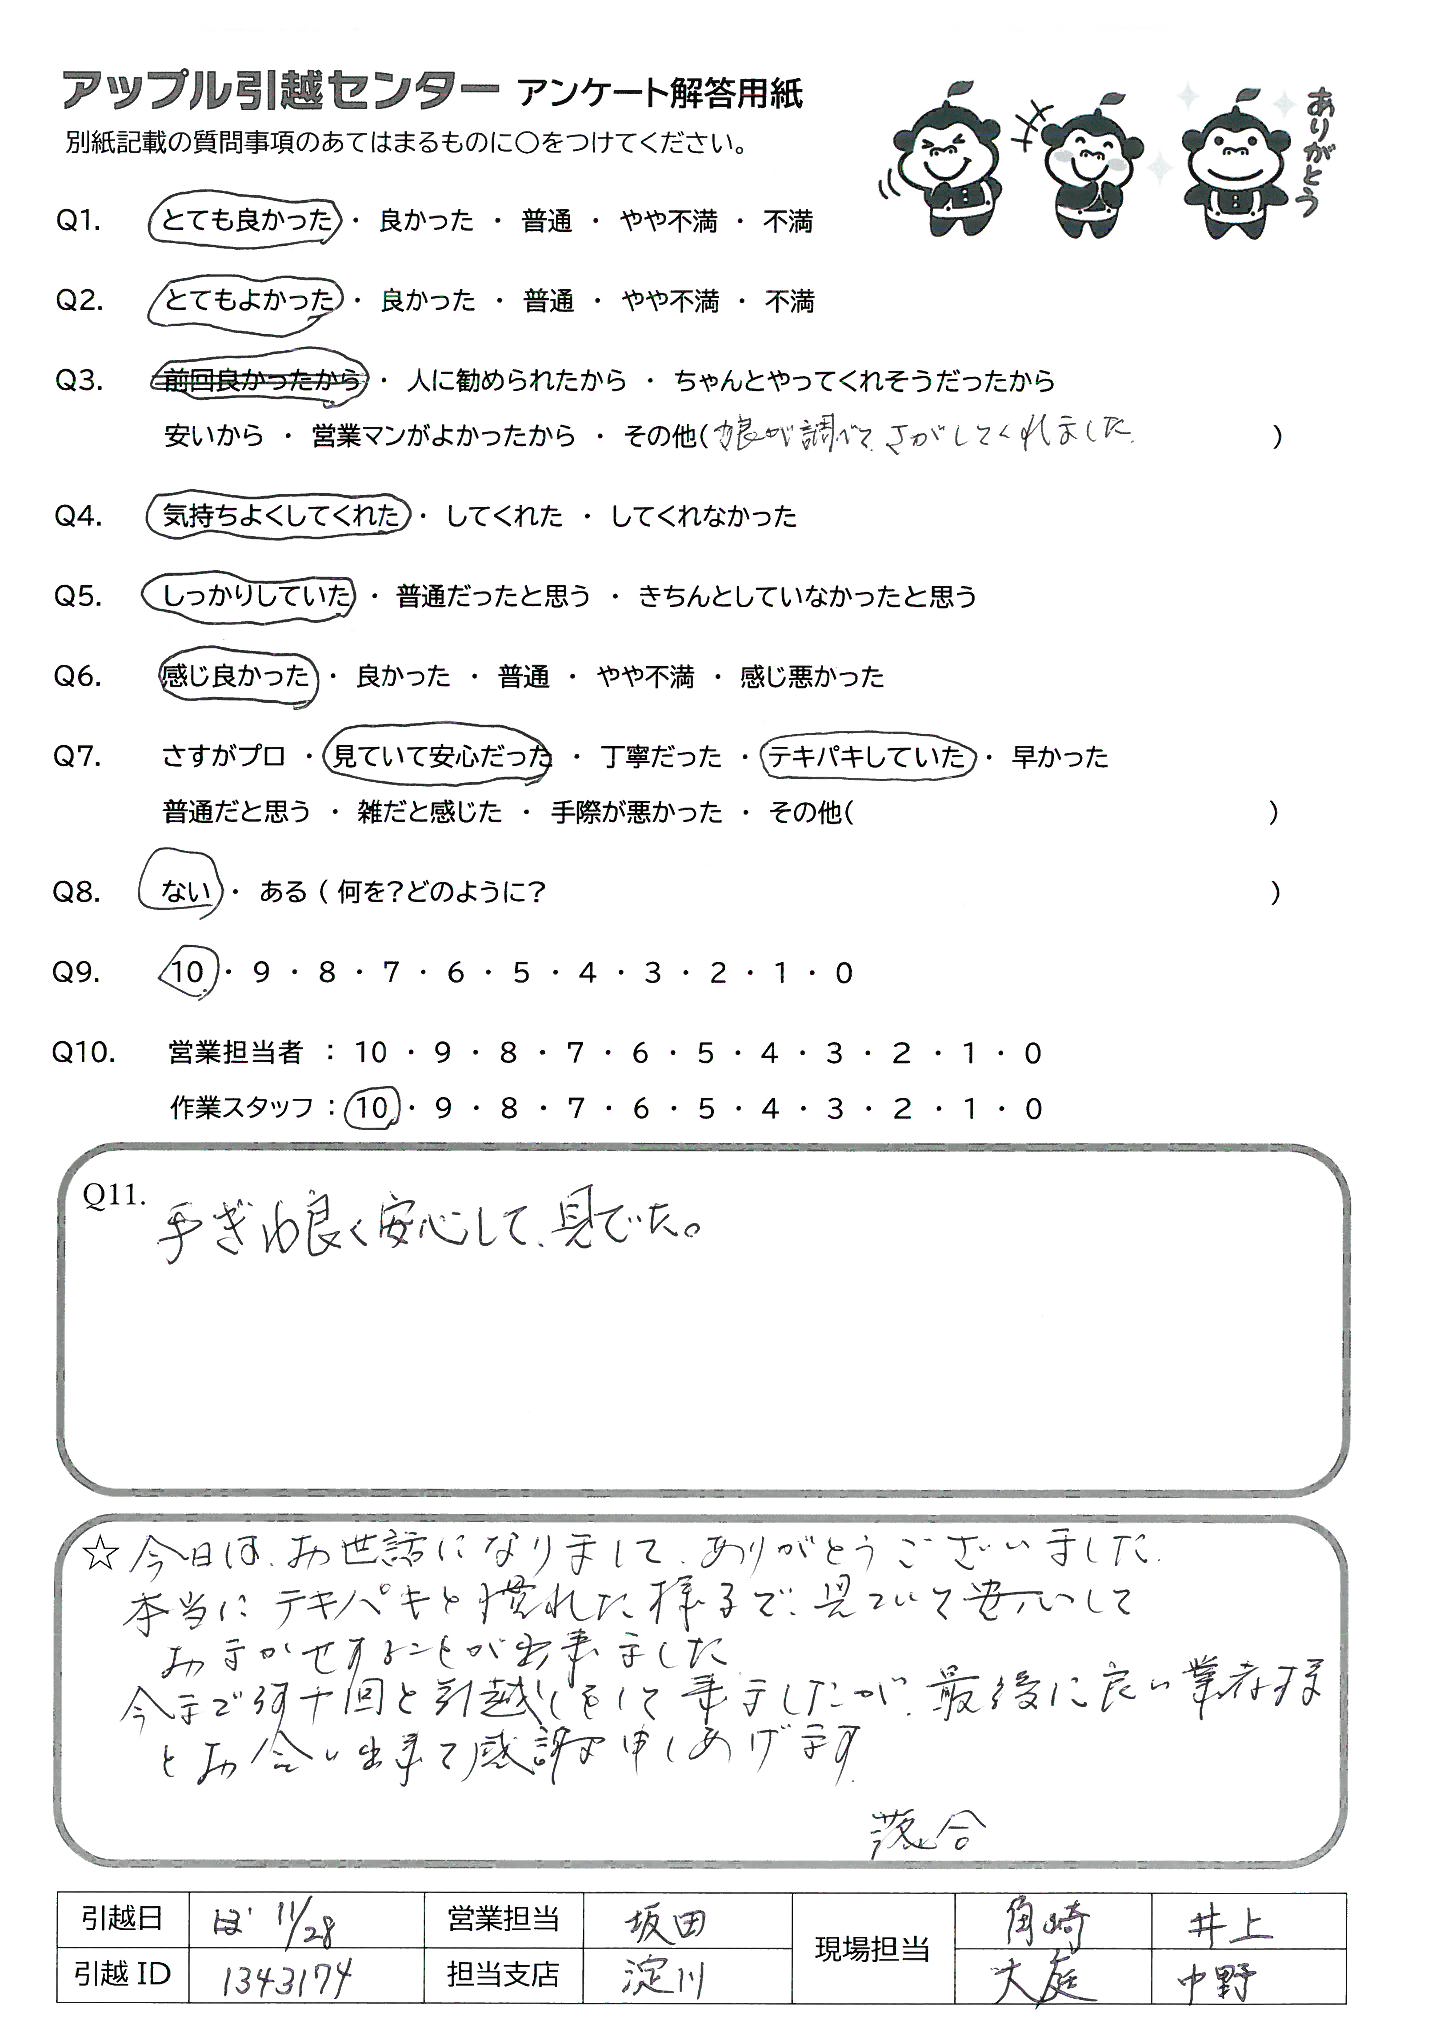 アップル引越センター アンケート解答用紙
ありがとう
別紙記載の質問事項のあてはまるものに○をつけてください。
Q1. とても良かった ・ 良かった ・ 普通 ・ やや不満 ・ 不満
Q2. とてもよかった ・ 良かった ・ 普通 ・ やや不満 ・ 不満
Q3. 前回良かったから ・ 人に勧められたから ・ ちゃんとやってくれそうだったから
安いから ・ 営業マンがよかったから ・ その他(娘が調べて、さがしてくれました。)
Q4. 気持ちよくしてくれた ・ してくれた ・ してくれなかった
Q5. しっかりしていた ・ 普通だったと思う ・ きちんとしていなかったと思う
Q6. 感じ良かった ・ 良かった ・ 普通 ・ やや不満 ・ 感じ悪かった
Q7. さすがプロ ・ 見ていて安心だった ・ 丁寧だった ・ テキパキしていた ・ 早かった
普通だと思う ・ 雑だと感じた ・ 手際が悪かった ・ その他( )
Q8. ない ・ ある ( 何を?どのように? )
Q9. 10 ・ 9 ・ 8 ・ 7 ・ 6 ・ 5 ・ 4 ・ 3 ・ 2 ・ 1 ・ 0
Q10. 営業担当者 : 10 ・ 9 ・ 8 ・ 7 ・ 6 ・ 5 ・ 4 ・ 3 ・ 2 ・ 1 ・ 0
作業スタッフ : 10 ・ 9 ・ 8 ・ 7 ・ 6 ・ 5 ・ 4 ・ 3 ・ 2 ・ 1 ・ 0
Q11. 手ぎわ良く安心して、見でいた。
☆今日は、お世話になりまして、ありがとうございました。
本当にテキパキと慣れた様子で、見ていて安心して
おまかせすることが出来ました
今まで何十回と引越しをして来ましたが、最後に良い業者様
とお会い出来て感謝申しあげます。
落合
引越日 11/28 営業担当 坂田 現場担当 角崎 井上
引越 ID 1343174 担当支店 淀川 大庭 中野